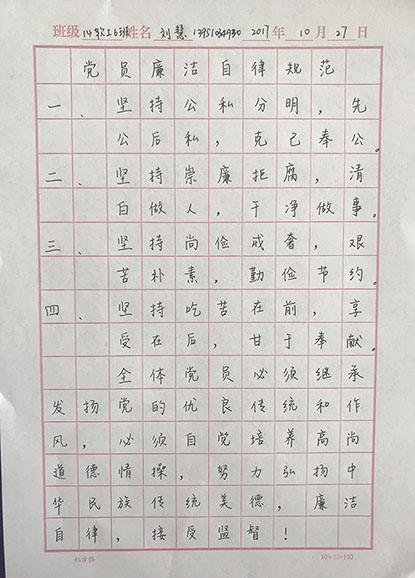 班级 14软工6班 姓名 刘慧 13951034930 2017年 10月 27日
党员廉洁自律规范
一、坚持公私分明，先
公后私，克己奉公。
二、坚持崇廉拒腐，清
白做人，干净做事。
三、坚持尚俭戒奢，艰
苦朴素，勤俭节约。
四、坚持吃苦在前，享
受在后，甘于奉献。
全体党员必须继承
发扬党的优良传统和作
风，必须自觉培养高尚
道德情操，努力弘扬中
华民族传统美德，廉洁
自律，接受监督！
红方格 10×15=150